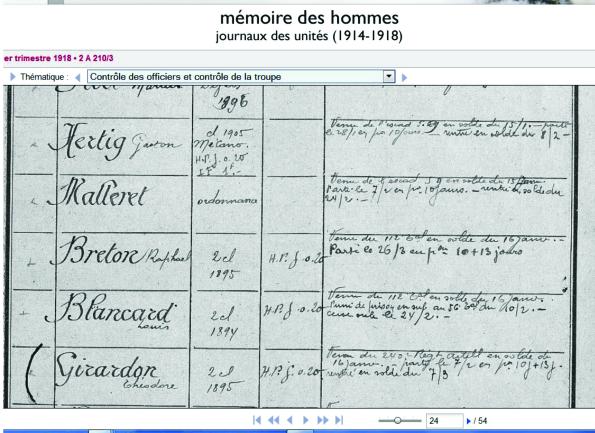 mémoire des hommes
journaux des unités (1914-1918)
er trimestre 1918 • 2 A 210/3
Thématique :
Contrôle des officiers et contrôle de la troupe
1896
Hertig Gaston
cl 1905
Mécano.
H.P. f. 0.20
Venu de en solde du 15/1. — parti
le 28/1 en pon 10 jours. — rentré en solde du 8/2 —
Malleret
ordonnance
Venu de en solde du 15 janv.
Parti le 7/2 en pon 10 jours. — rentré en solde du
24/2. —
Breton Raphael
2 cl
1895
H.P. f 0.20
Venu du 112 en solde du 16 janv. —
Parti le 26/3 en pon 10 + 13 jours
Blancard
Louis
2 cl
1894
H.P. f 0.20
Venu du 112 en solde du 16 janv.
au 56 du 10/2. —
24/2. —
Girardon
théodore
2 cl
1895
H.P. f. 0.20
Venu du 240 Régt artell en solde du
16 janv. — parti le 7/2 en pon 10j + 13j. —
rentré en solde du 7/3
24
/ 54